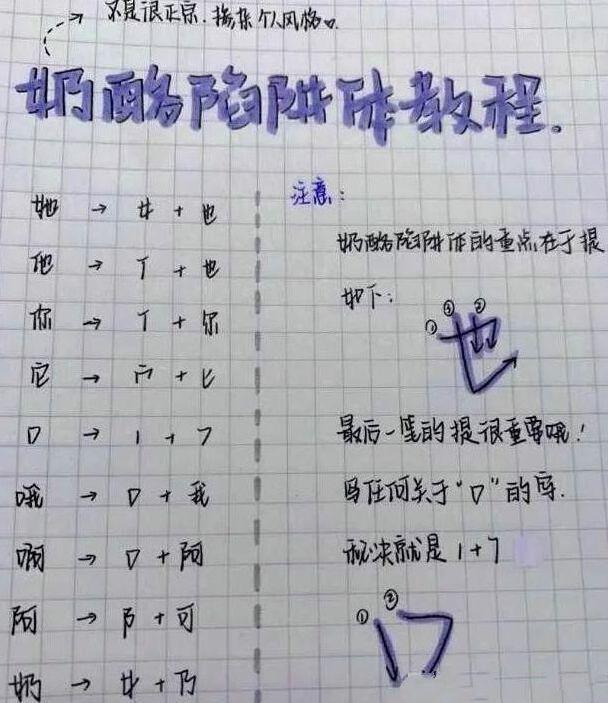 不是很正宗.掺杂个人风格。
奶酪陷阱体教程.
她 → 女 + 也
他 → 亻 + 也
你 → 亻 + 尔
它 → 宀 + 匕
口 → 1 + 7
哦 → 口 + 我
啊 → 口 + 阿
阿 → 阝 + 可
奶 → 女 + 乃
注意:
奶酪陷阱体的重点在于提
如下:
① ③ ②
也
最后一笔的提很重要哦!
写任何关于“口”的字.
秘诀就是 1+7
① ②
口